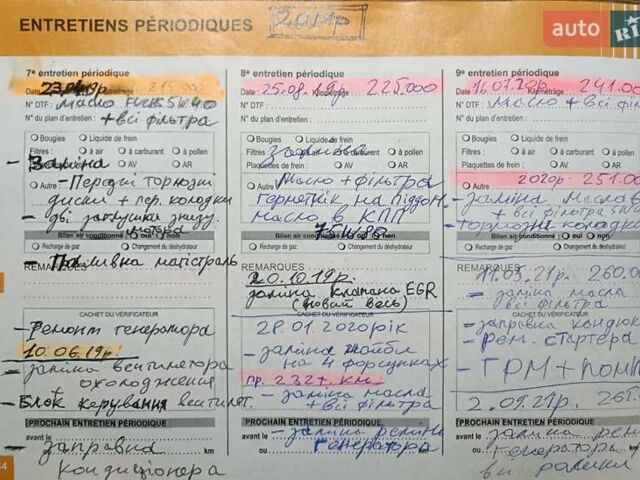 ENTRETIENS PÉRIODIQUES
2019р
auto
RI
7e entretien périodique
23.04.19р. 215.000
Date Kilométrage
N° DTF : масло FUCHS 5W40
+ всі фільтра
N° du plan d'entretien :
Bougies Liquide de frein
Filtres : à air à carburant à pollen
- Заміна
Plaquettes de frein : AV AR
Autre - Передні тормозні
диски + пер. колодки
- дві заглушки знизу
мотора
Bilan air conditionné : oui non
Recharge de gaz Changement du déshydrateur
REMARQUES
- Паливна магістраль
CACHET DU VÉRIFICATEUR
- Ремонт генератора
10.06.19р.
- заміна вентилятора
охолодження
+
- Блок керування вентилят.
PROCHAIN ENTRETIEN PÉRIODIQUE
avant le ou km
- заправка
кондиціонера
8e entretien périodique
Date 25.08.19р. Kilométrage 225.000
N° DTF :
N° du plan d'entretien :
Bougies Liquide de frein
Filtres : à air à carburant à pollen
заміна
Plaquettes de frein : AV AR
Autre масло + фільтра
герметік на піддон
масло в КПП
75W80
Bilan air conditionné : oui non
Recharge de gaz Changement du déshydrateur
REMARQUES
20.10.19р.
заміна клапана EGR
(новий весь)
CACHET DU VÉRIFICATEUR
28.01.2020рік
- заміна шайби
на 4 форсунках
пр. 232т. км.
- заміна масла
+ всі фільтра
PROCHAIN ENTRETIEN PÉRIODIQUE
avant le - заміна ремінь
ou генератора
9e entretien périodique
Date 16.07.20р. Kilométrage 241.00
N° DTF : Масло + всі філ
N° du plan d'entretien :
Bougies Liquide de frein
Filtres : à air à carburant à pollen
Plaquettes de frein : AV AR
Autre 2020р. 251.00
- заміна масла
+ всі фільтра 5W
- тормозні колодки
Bilan air conditionné : oui non
Recharge de gaz Changement du déshydrateur
REMARQUES
11.03.21р. 260.00
- заміна масла
всі фільтра
CACHET DU VÉRIFICATEUR
- заправка кондиц
- Рем. стартера
- ГРМ + помп
2.09.21р. 265
PROCHAIN ENTRETIEN PÉRIODIQUE
avant le - заміна ремі
ou генератора
всі ролики